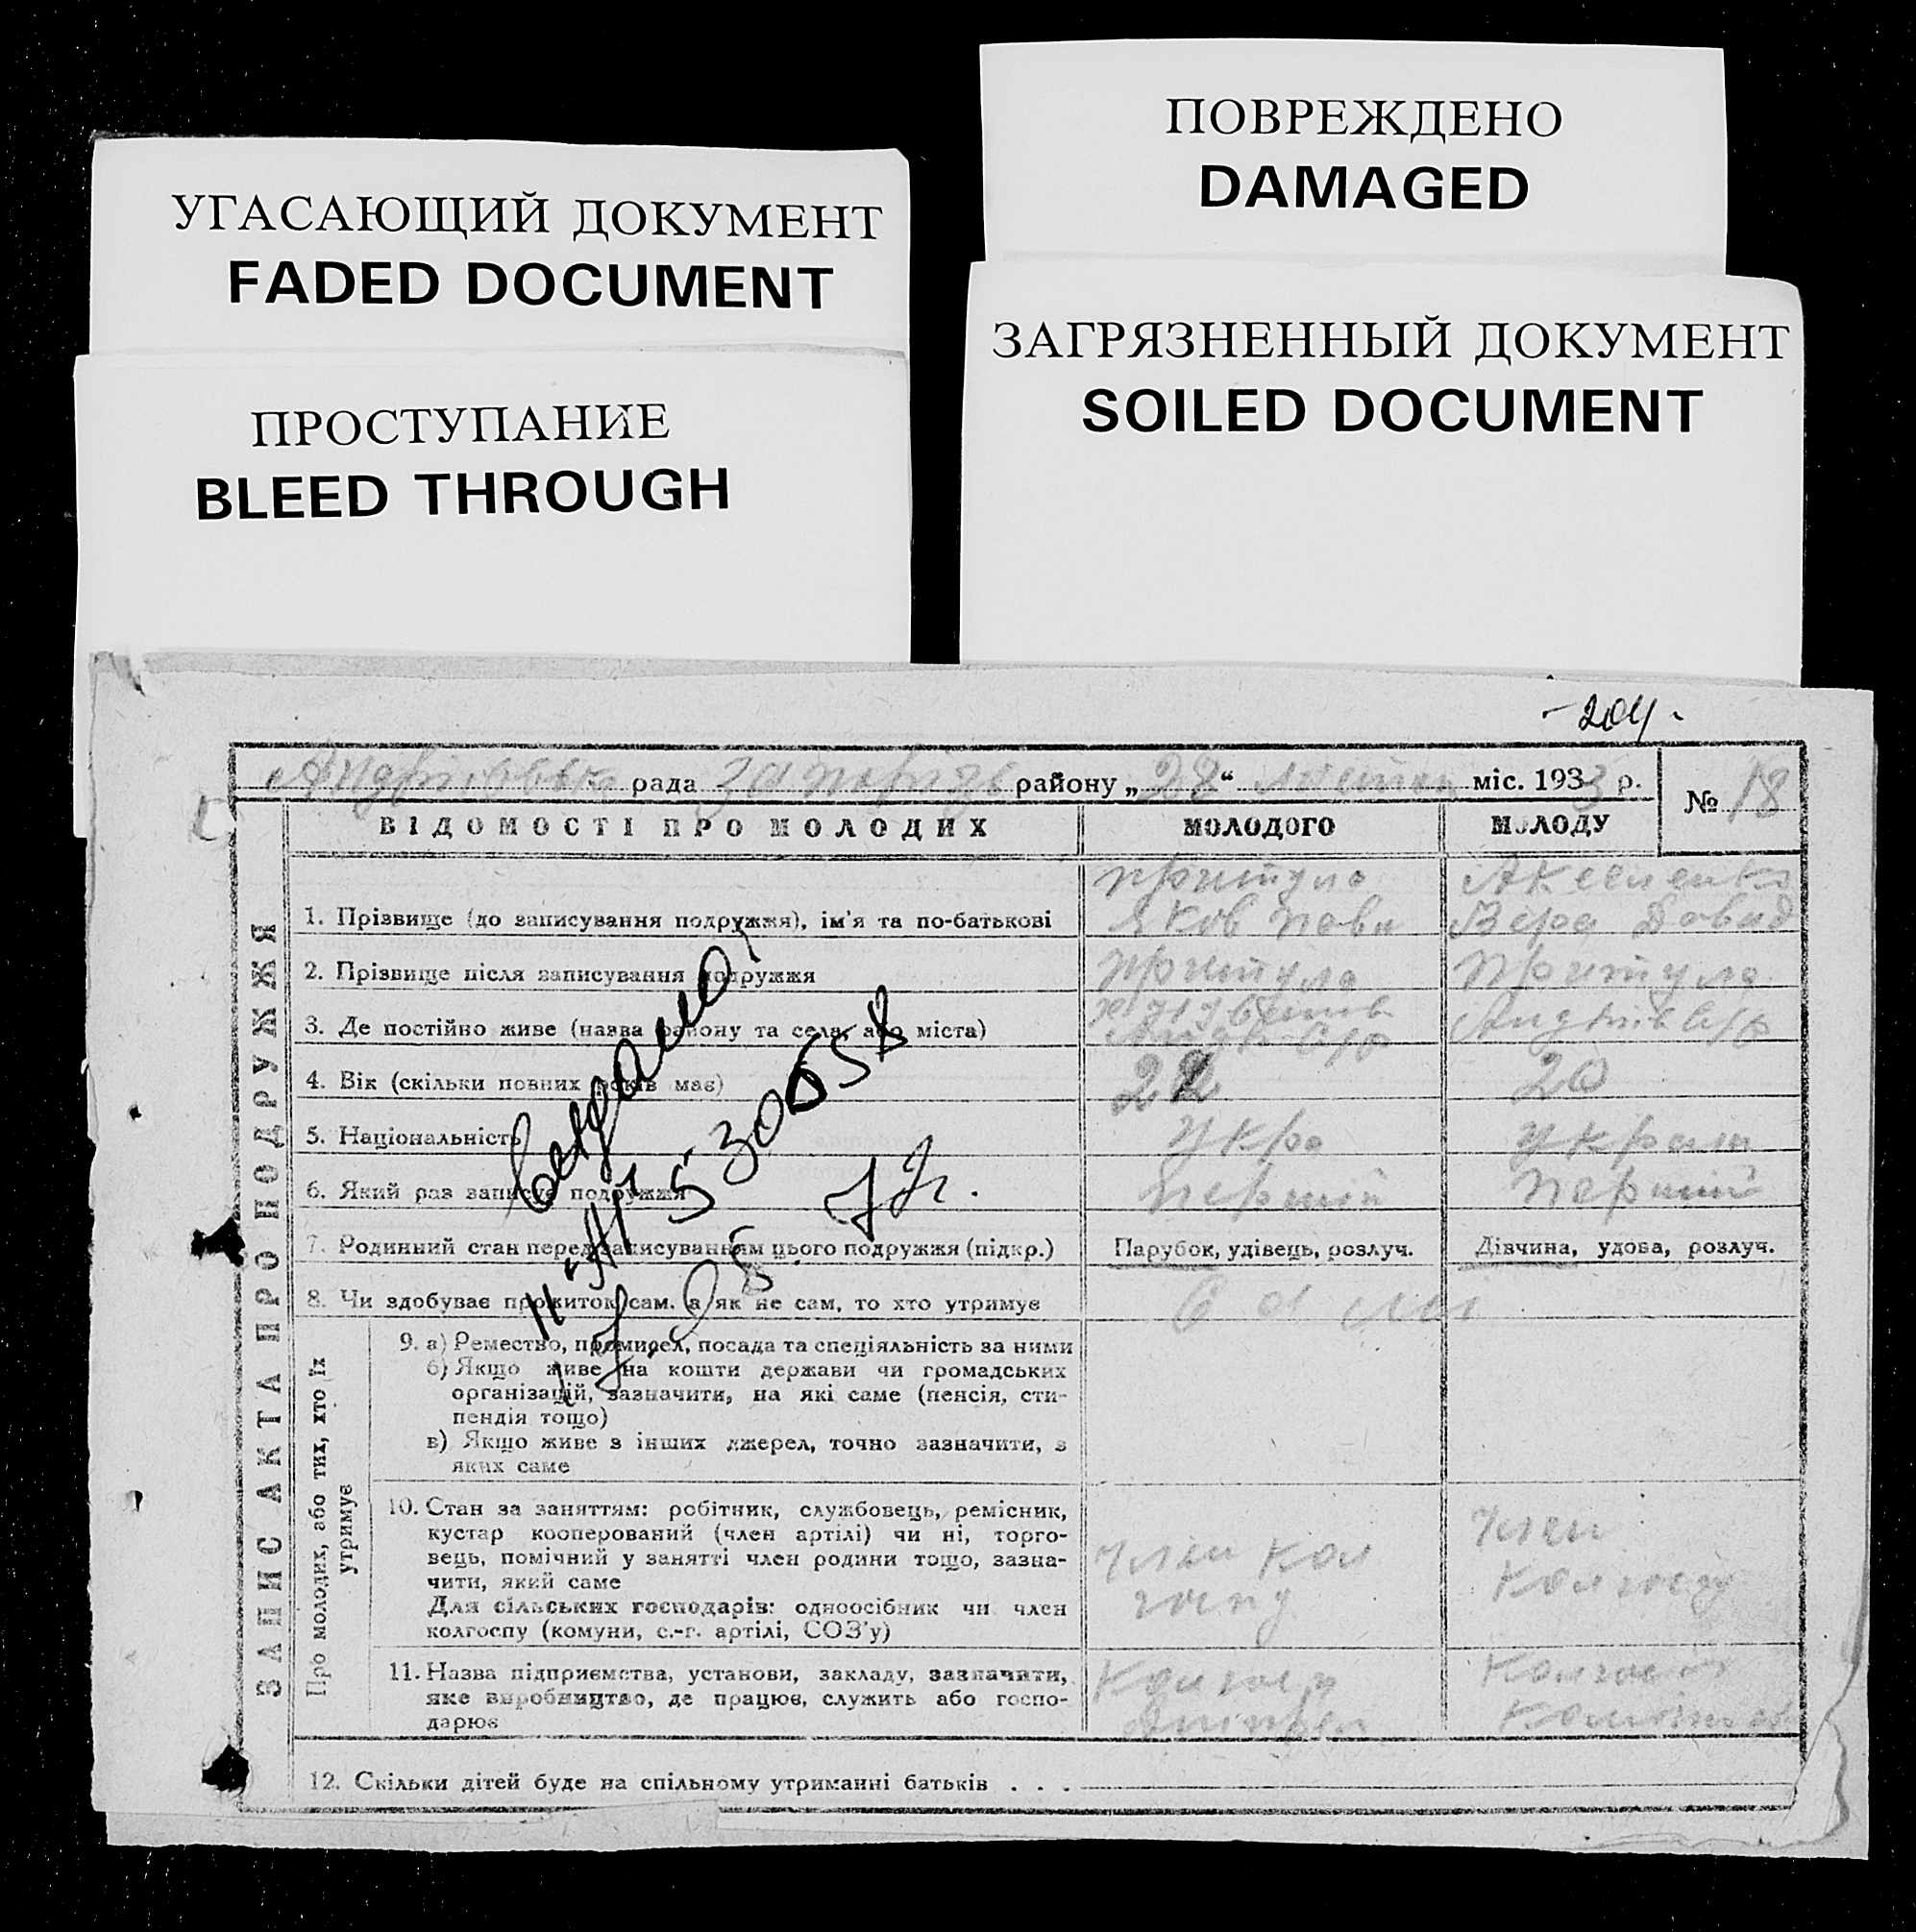 ПОВРЕЖДЕНО
DAMAGED
УГАСАЮЩИЙ ДОКУМЕНТ
FADED DOCUMENT
ЗАГРЯЗНЕННЫЙ ДОКУМЕНТ
SOILED DOCUMENT
ПРОСТУПАНИЕ
BLEED THROUGH
- 204 -
рада району „22“ міс. 1933 р.
№ 18
ВІДОМОСТІ ПРО МОЛОДИХ
МОЛОДОГО
МОЛОДУ
ЗАПИС АКТА ПРО ПОДРУЖЖЯ
1. Прізвище (до записування подружжя), ім'я та по-батькові
Притула
Яков Павл
Вера Давид
2. Прізвище після записування подружжя
Притула
Притула
3. Де постійно живе (назва району та села, або міста)
4. Вік (скільки повних років має)
22
20
5. Національність
Укра
Украин
6. Який раз записує подружжя
Перший
Перший
7. Родинний стан перед записуванням цього подружжя (підкр.)
Парубок, удівець, розлуч.
Дівчина, удова, розлуч.
8. Чи здобуває прожиток сам, а як не сам, то хто утримує
Про молодих, або тих, хто їх
утримує
9. а) Ремество, промисел, посада та спеціяльність за ними
б) Якщо живе на кошти держави чи громадських
організацій, зазначити, на які саме (пенсія, сти-
пендія тощо)
в) Якщо живе з інших джерел, точно зазначити, з
яких саме
10. Стан за заняттям: робітник, службовець, ремісник,
кустар кооперований (член артілі) чи ні, торго-
вець, помічний у занятті член родини тощо, зазна-
чити, який саме
Для сільських господарів: одноосібник чи член
колгоспу (комуни, с.-г. артілі, СОЗ'у)
член кол
госпу
член
колгоспу
11. Назва підприємства, установи, закладу, зазначити,
яке виробництво, де працює, служить або госпо-
дарює
Колгосп
Колгосп
12. Скільки дітей буде на спільному утриманні батьків . . .